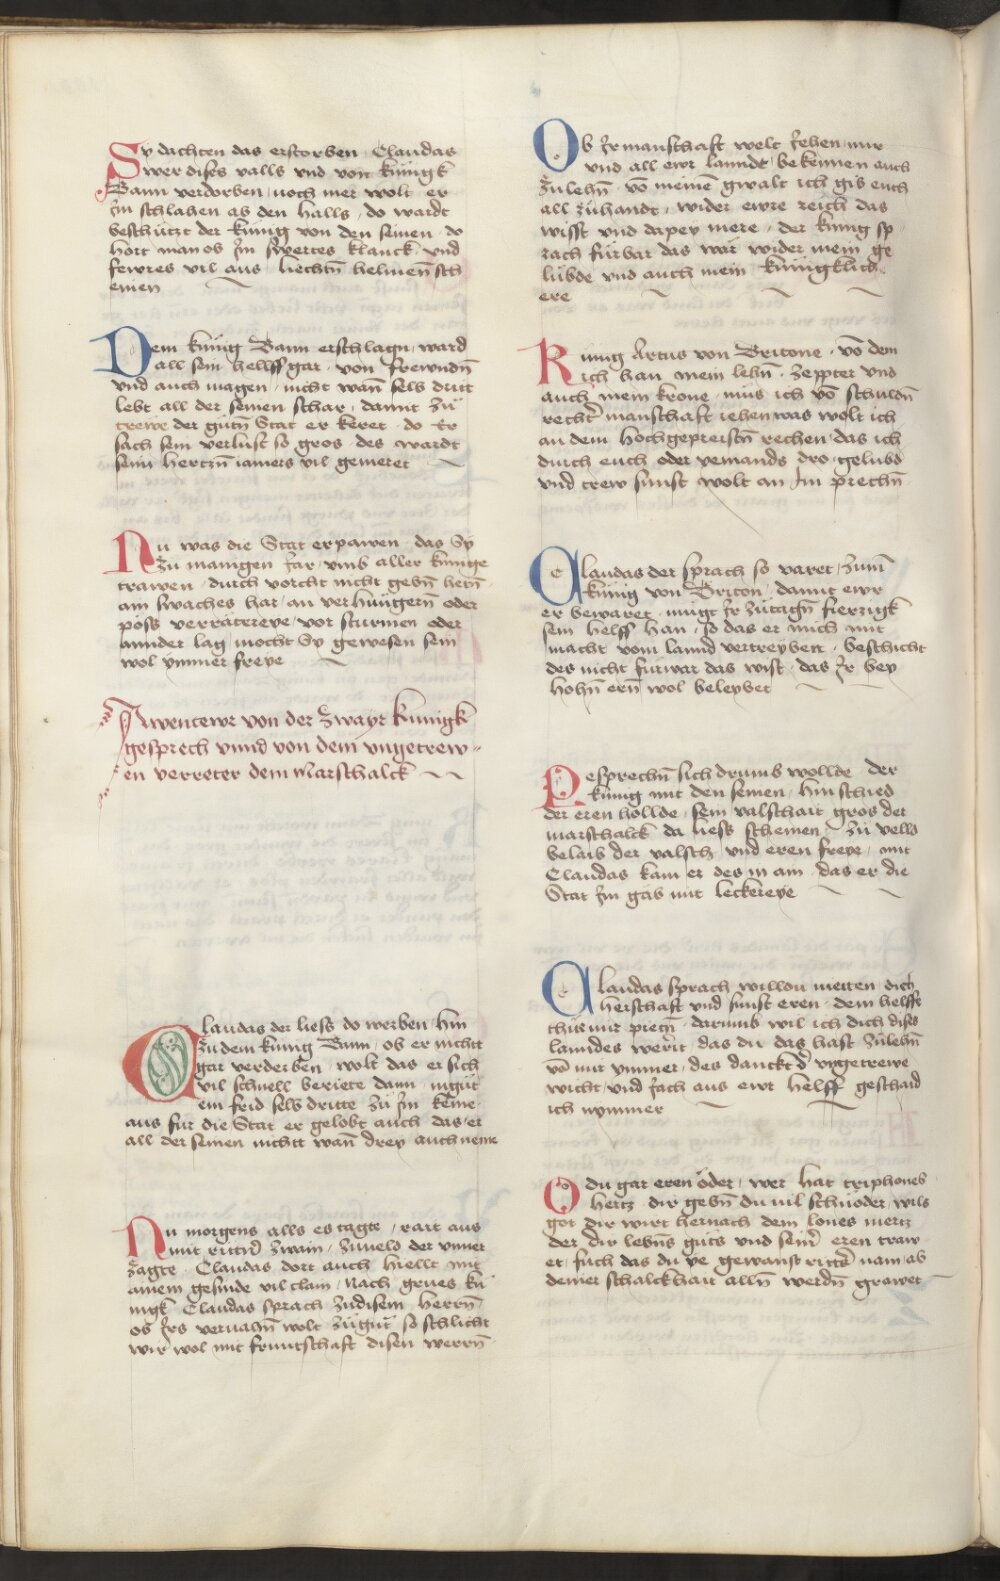 Sy dachten das erstorben Claudas
wer dises valls vnd von kunigk
Bann verdorben noch mer wolt er
Im schlahen ab den halls do wardt
beschützt der kunig von den seinen do
hort man ob Im swertes klanck vnd
fewres vil aus liechtn̄ helmen sch
einen
Dem kunig Bann erschlagn̄ ward
all sein hellff gar von frewndn̄
vnd auch magen nicht wan̄ selb drit
lebt all der seinen schar damit zu
trewe der gutn̄ Stat er keret do Er
sach sein verlust so gros des wardt
seim hertzn̄ iamers vil gemeret
Nu was die Stat erpawen das Sy
zu manigen Jar vmb aller kunige
trawen durch vorcht nicht gebn̄ hetn̄
am swaches har an verhungern̄ oder
poss verräterey vor sturmen oder
annder lag mocht Sy gewesen sein
wol ymmer freye
Awentewr von der zwayr kunigk
gesprech vnnd von dem vngetrew-
en verreter dem Marschalck
Claudas der liess do werben hin
zu dem kunig Bann ob er nichtt
gar verderben wolt das er sich
vil schnell beriete dann in gut
ein frid selb dritte zu Im keme
aus fur die Stat er gelobt auch das er
all der seinen nichtt wan̄ drey auch neme
Nu morgens alls es tagte rait aus
mit rittern̄ zwain zuuelld der ymmer
zagte Claudas dort auch hiellt mit
ainem gesinde vil clain nach grues ku
nigk Claudas sprach zudisem herrn̄
ob Jrs veruahn̄ wolt zugut so schlicht
wir wol mit fruntschaft disen werrn̄
Ob Jr manschaft welt Jehen mir
vnd all ewr lanndt bekennen auch
zulehn̄ vō meinē gwalt ich gib euch
all zuhandt wider ewre reich das
wisst vnd dapey mere der kunig sp
rach furbar das wär wider mein ge
lubde vnd auch mein kunigklich
ere
Kunig Artus von Britone vō dem
ich han mein lehn̄ Zeppter vnd
auch mein krone mus ich vō schuldn̄
rechtr manschaft iehen was wolt ich
an dem hochgepreistn̄ rechen das ich
durch euch oder yemands dro gelubd
vnd trew sunst wolt an Im prechn̄
Claudas der sprach so varet zum
kunig von Briton damit ewr
er bewaret mugt Jr zutagn̄ fierzigk
sein helff han Jd das er mich mit
macht vom lannd vertreyben beschicht
des nicht furwar das wist das Jr bey
hohn̄ ern̄ wol beleybet
Besprechn̄ sich drumb wollde der
kunig mit den seinen hin schied
der eren hollde sein valschait gros der
marschalck da liess scheinen zu velld
belaib der valsch vnd eren freye mit
Claudas kam er des in am das er die
Stat Jm gab mit leckereye
Claudas sprach willdu mieten dich
herschaft vnd sunst eren dem helffe
thu mir pietn̄ darumb wil ich dich dises
lanndes wern̄ das du das hast zulehn̄
vō mir ymmer des danckt d vngetrewe
wicht vnd Jach aus ewr helff geschaid
ich nymmer
O du gar eren öder wer hat triphones
hertz dir gebn̄ du vil schnöder wils
got dir wirt hernach dein lones mertz
der dir lebns guts vnd seinr eren traw
et such das du ye gewanst rittr nam ab
deiner schalckhait alln̄ werdn̄ grawet